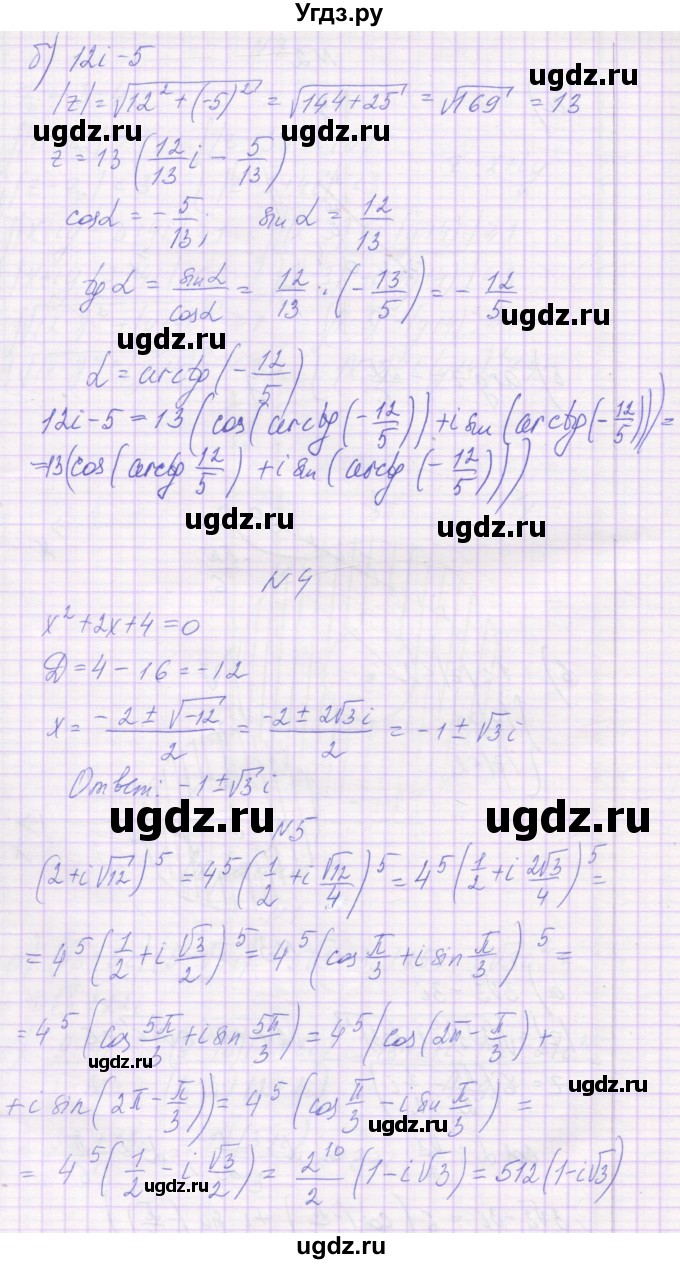 Угдз.ру
б) 12i-5
|z|=√(12²+(-5)²) = √(144+25) = √169 = 13
ugdz.ru
ugdz.ru ugdz.ru
z=13(12/13 i - 5/13)
cosα=-5/13; sin α = 12/13
tg α = sinα/cosα = 12/13 · (-13/5) = - 12/5
ugdz.ru
ugdz.ru
α=arctg(-12/5)
12i-5=13(cos(arctg(-12/5))+i sin(arctg(-12/5)))=
=13(cos(arctg 12/5)+i sin(arctg(-12/5)))
ugdz.ru ugdz.ru
N4
x²+2x+4=0
D=4-16=-12
x= (-2±√-12)/2 = (-2±2√3i)/2 = -1±√3i
Ответ: -1±√3i
ugdz.ru ugdz.ru
N5
(2+i√12)^5 = 4^5(1/2+i √12/4)^5 = 4^5(1/2+i 2√3/4)^5=
=4^5(1/2+i √3/2)^5= 4^5(cos π/3+i sin π/3)^5=
=4^5(cos 5π/3+i sin 5π/3)=4^5(cos(2π-π/3)+
ugdz.ru
ugdz.ru
+i sin(2π-π/3))= 4^5(cos π/3-i sin π/3) =
ugdz.ru
= 4^5(1/2-i √3/2)= 2^10/2 (1-i√3)=512(1-i√3)
ugdz.ru
ugdz.ru